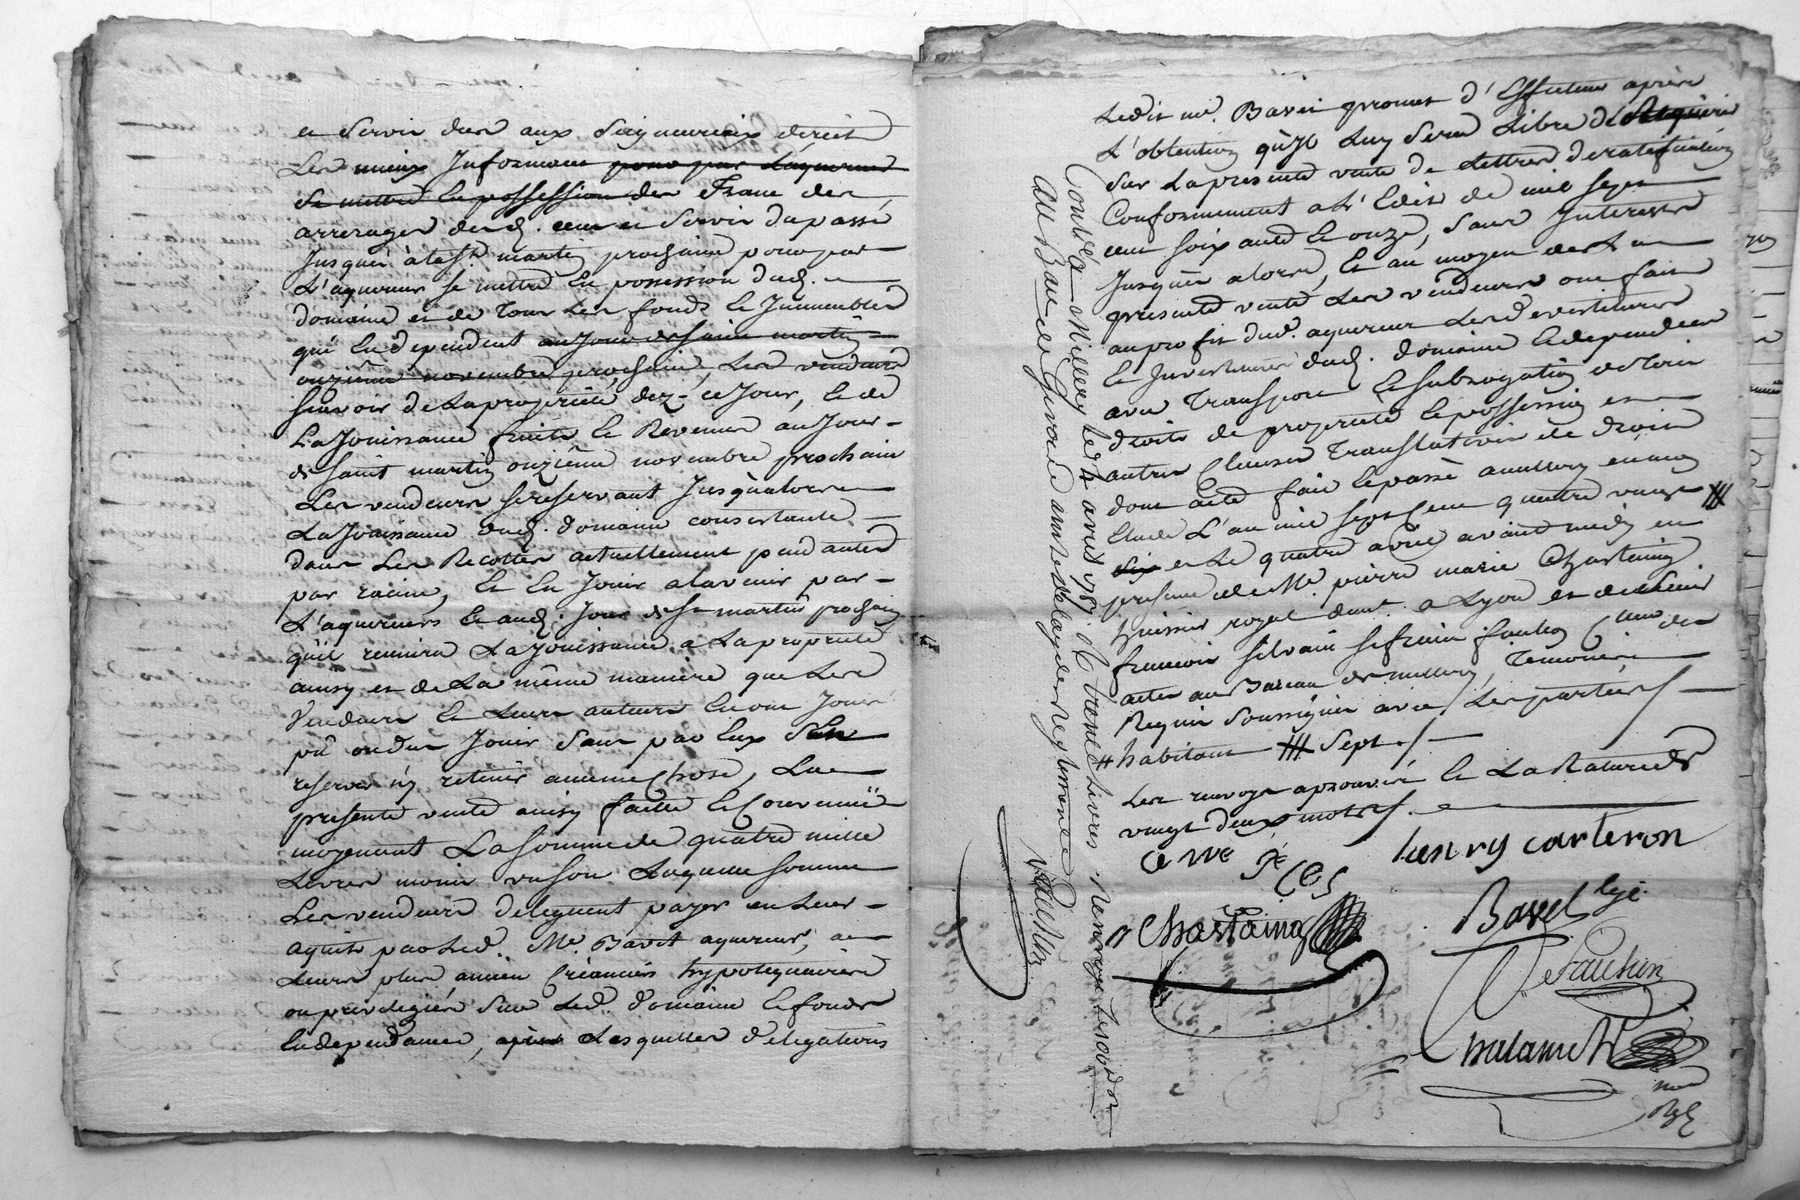 et servis dus aux seigneuries direct
Les mieux Informans pour par Laquereur
se mettre En possession des Franc des
arrerages desd. cens et servis du passé
Jusques à la St. martin prochaine pour par
L'aquereur se mettre En possession dud.
domaine et de Tous Les fonds et Immeubles
qui En dependent au Jour de saint martin
onzième novembre prochain, Les vendeurs
scavoir de La proprieté dez-ce Jour, et de
La Jouissance fruits et Revenus au Jour-
de saint martin onzième novembre prochain
Les vendeurs se reservant Jusqu'alors
La Jouissance dud. domaine consistante
dans Les Recoltes actuellement pendantes
par racine, Et En Jouir a lavenir par-
L'aquereurs Et aud. Jour de St martin prochain
qu'il reunira La Jouissance a La proprieté
ainsy et de La même manière que Les
Vendeurs et Leurs auteurs En ont Joui
pû ou du Jouir sans par Eux s'En
reserver n'y retenir aucune Chose, La
presente vente ainsy faitte et Convenüe
moyennant La somme de quatre mille
Livres moins un sou Laquelle somme
Les vendeurs delèguent payer en Leur-
aquit par Led. Me. Bavet aquereur, a
Leurs plus ancien Créanciers hypotequaires
ou privilegiés sur Led. domaine et fonds
En dependance, Lesquelles délegations
Ledit me. Bavet promet d'Effectuer après
L'obtention qu'Il Luy sera Libre de Requerir
sur La presente vente de Lettres de ratification
Conformement a L'Edit de mil sept
cent soixante et onze, sans Interests
Jusques alors, Et au moyen des
presente vente Les vendeurs ont fait
au profit dud. aquereur Les devestitures
et Investitures dud. domaine et dependances
avec Transport et subrogation de tous
droits de proprieté et possession et
autres Clauses Translatives de droit
dont acte fait et passé a millery en mon
Etude L'an mil sept cent quatre vingt #
six et Le quatre avril avant midy en
presence de Me. pierre marie Chastaing
huissier royal dem.t a Lyon et de sieur
francois silvain sefrain faulin
actes au Bureau de millery, Temoins
Requis soussignés avec Les parties
# habitant # sept ./.
Les renvoys aprouvés et La Rature de
vingt deux mots
henry carteron
Chastaing
Bavet
Faulin
Controlé a Millery le 4 avril 1787. R. trente Livres